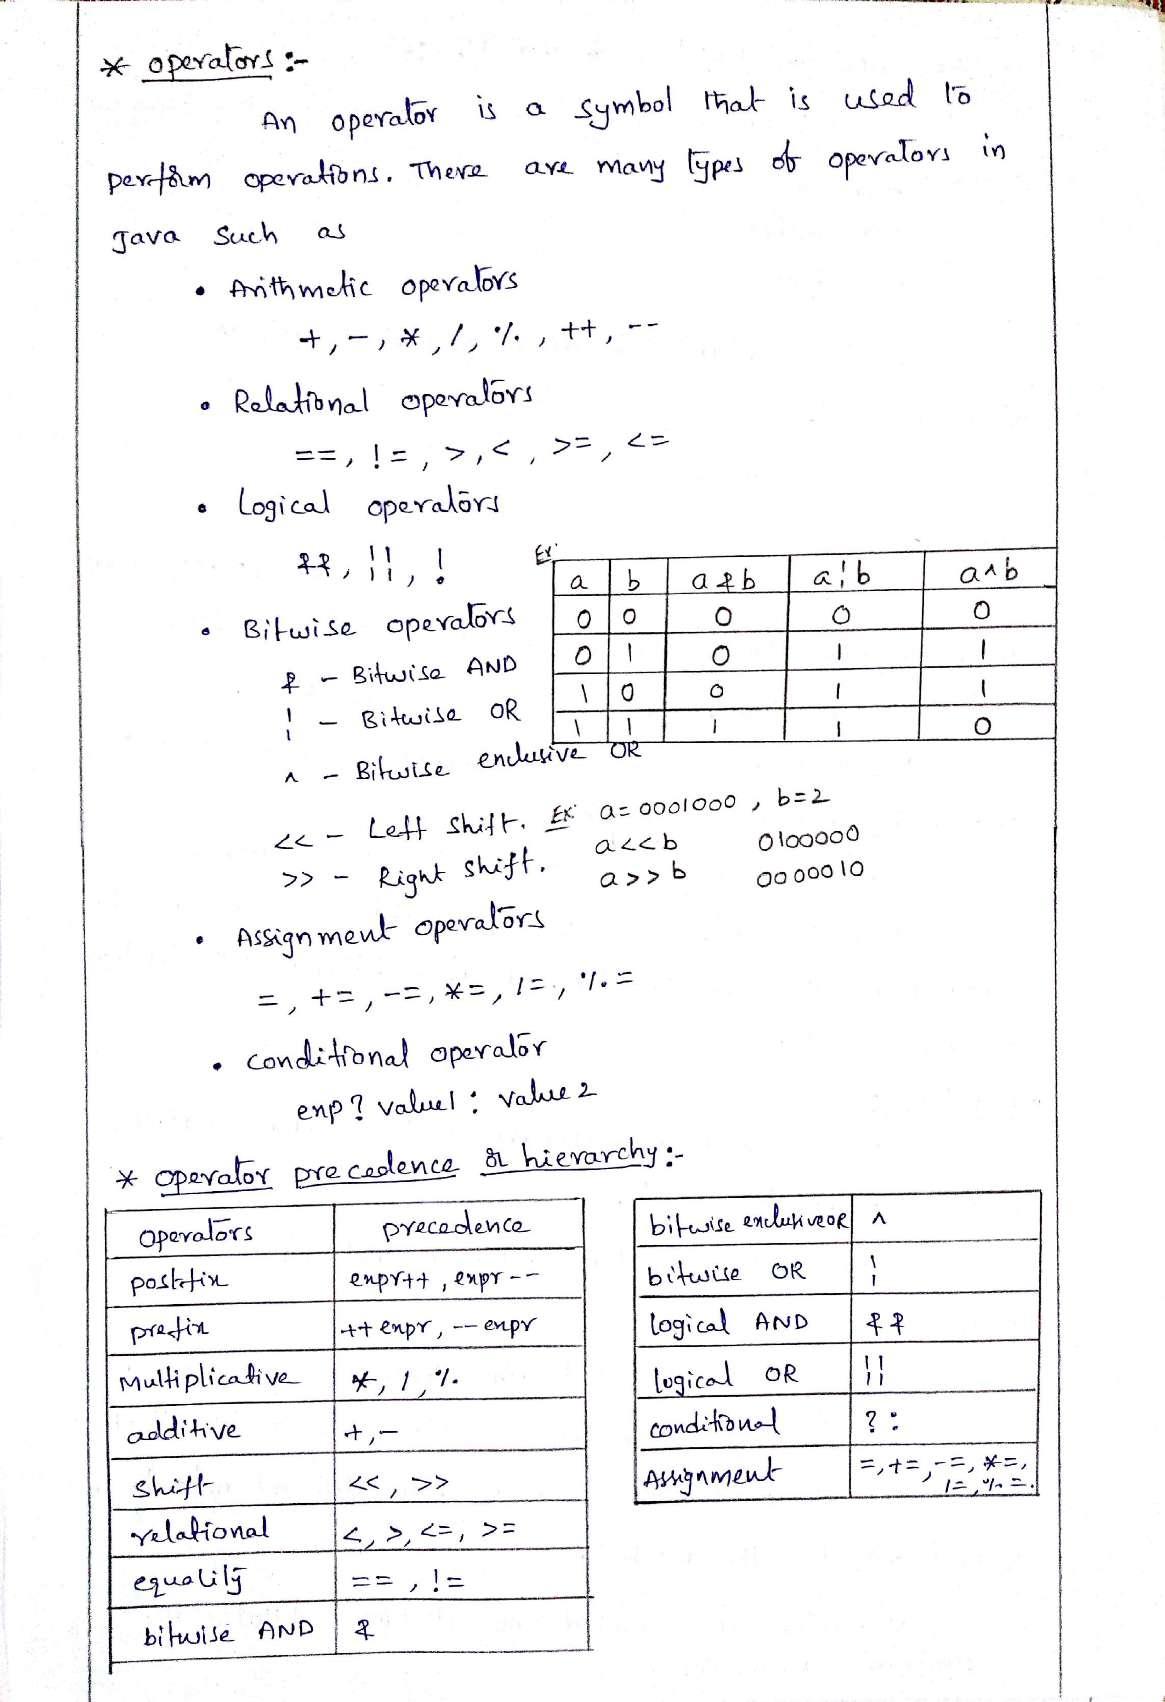 * operators :-
An operator is a symbol that is used to
perform operations. There are many types of operators in
Java such as
• Arithmetic operators
+, -, *, /, %, ++, --
• Relational operators
==, !=, >, <, >=, <=
• Logical operators
&&, ||, !
Ex:
a b a&b a|b a^b
0 0 0 0 0
0 1 0 1 1
1 0 0 1 1
1 1 1 1 0
• Bitwise operators
& - Bitwise AND
| - Bitwise OR
^ - Bitwise exclusive OR
<< - Left shift. Ex: a=0001000, b=2
a<<b 0100000
>> - Right shift.
a>>b 0000010
• Assignment operators
=, +=, -=, *=, /=, %=
• conditional operator
exp? value1 : value2
* operator precedence & hierarchy :-
operators precedence
postfix expr++, expr--
prefix ++expr, --expr
Multiplicative *, /, %
additive +, -
shift <<, >>
relational <, >, <=, >=
equality ==, !=
bitwise AND &
bitwise exclusive OR ^
bitwise OR |
logical AND &&
logical OR ||
conditional ? :
Assignment =, +=, -=, *=,
/=, %=.